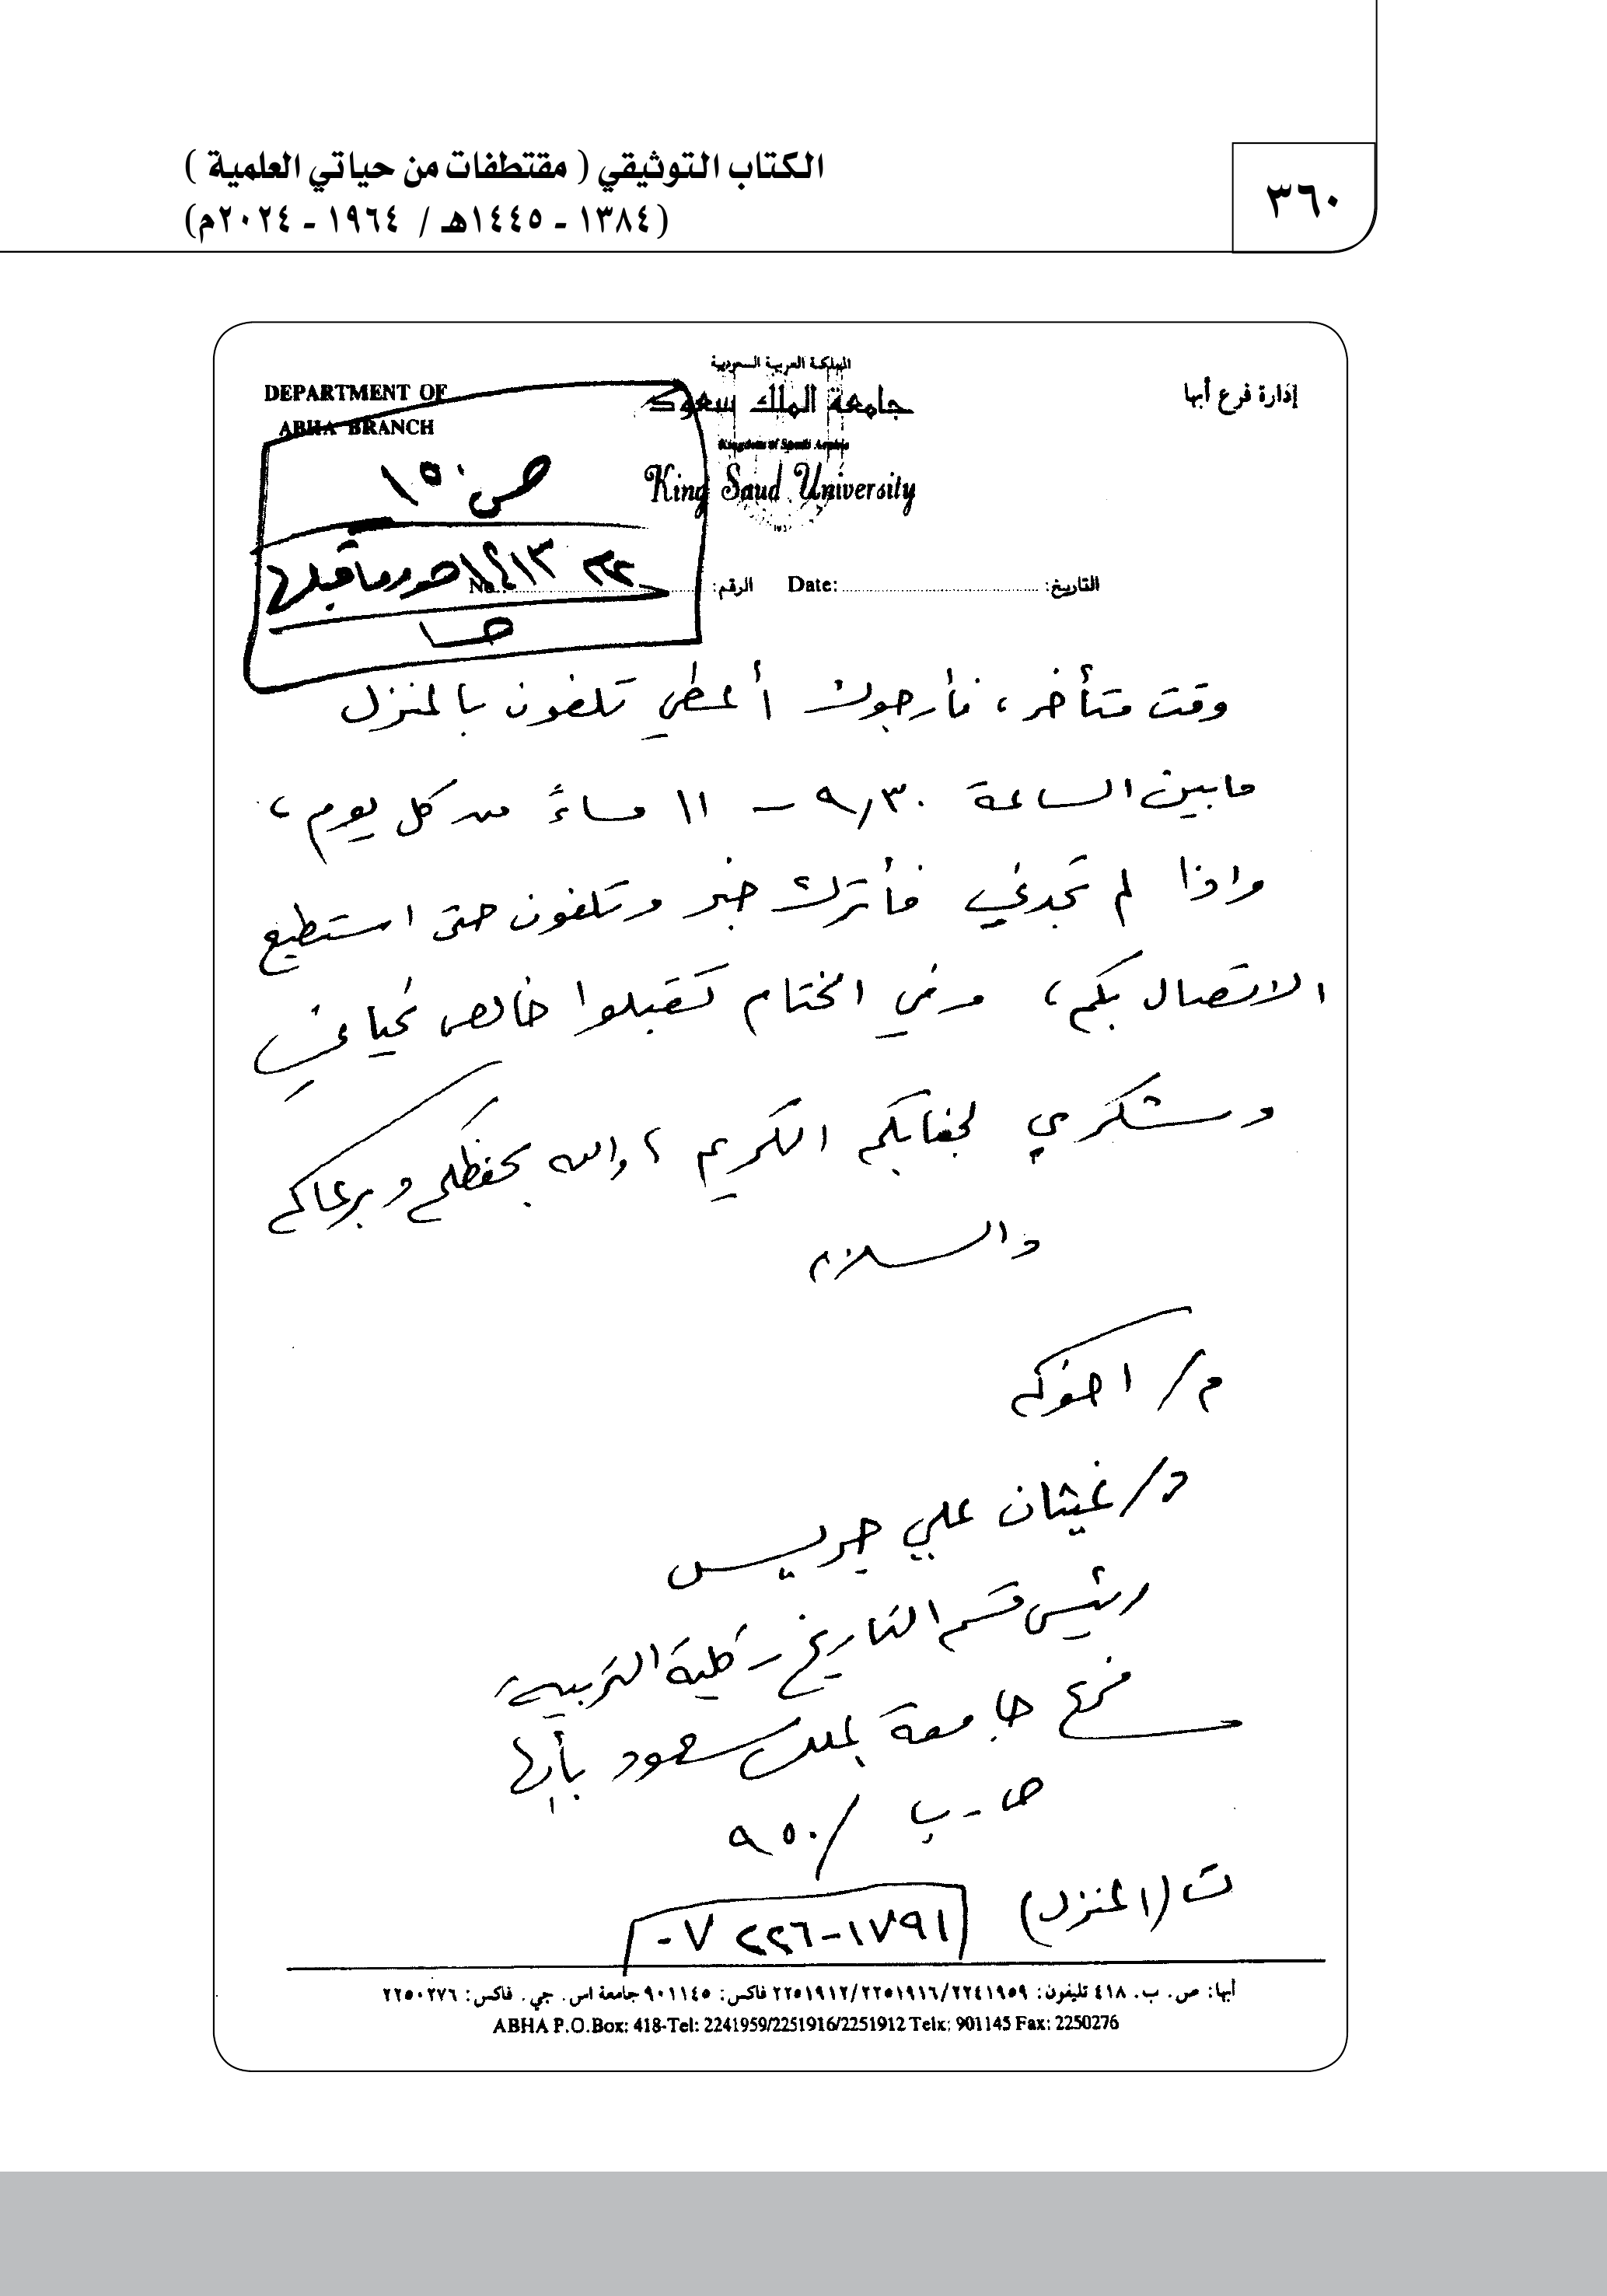 الكتاب التوثيقي ( مقتطفات من حياتي العلمية )
(١٣٨٤ ـ ١٤٤٥هـ / ١٩٦٤ ـ ٢٠٢٤م)
٣٦٠
المملكة العربية السعودية
إدارة فرع أبها
جامعة الملك سعود
DEPARTMENT OF
ABHA BRANCH
Kingdom of Saudi Arabia
King Saud University
ص ١٥٠
وما قبلها
التاريخ: Date: الرقم: No.:
وقت متأخر، فأرجوك أعطي تلفون بالمنزل
مابين الساعة ٩,٣٠ – ١١ مساءً من كل يوم،
واذا لم تجدني فأترك خبر وتلفون حتى استطيع
الاتصال بكم، وفي الختام تقبلوا خالص تحياتي
وشكري لجنابكم الكريم، والله يحفظكم ويرعاكم
والسلام
م/ اخوكم
د/ غيثان علي جريس
رئيس قسم التاريخ - كلية التربية
فرع جامعة الملك سعود بأبها
ص - ب / ٩٥٠
ت (المنزل) ٠٧ ٢٢٦-١٧٩١
أبها: ص. ب. ٤١٨ تليفون: ٢٢٤١٩٥٩/٢٢٥١٩١٦/٢٢٥١٩١٢ فاكس: ٩٠١١٤٥ جامعة اس. جي. فاكس: ٢٢٥٠٢٧٦
ABHA P.O.Box: 418-Tel: 2241959/2251916/2251912 Telx: 901145 Fax: 2250276